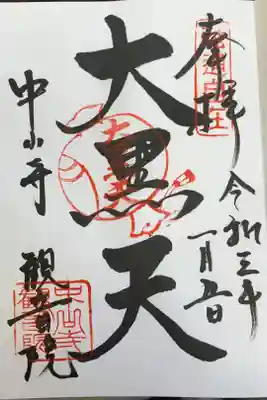 奉拝
令和三年
一月五日
大黒天
中山寺
観音院